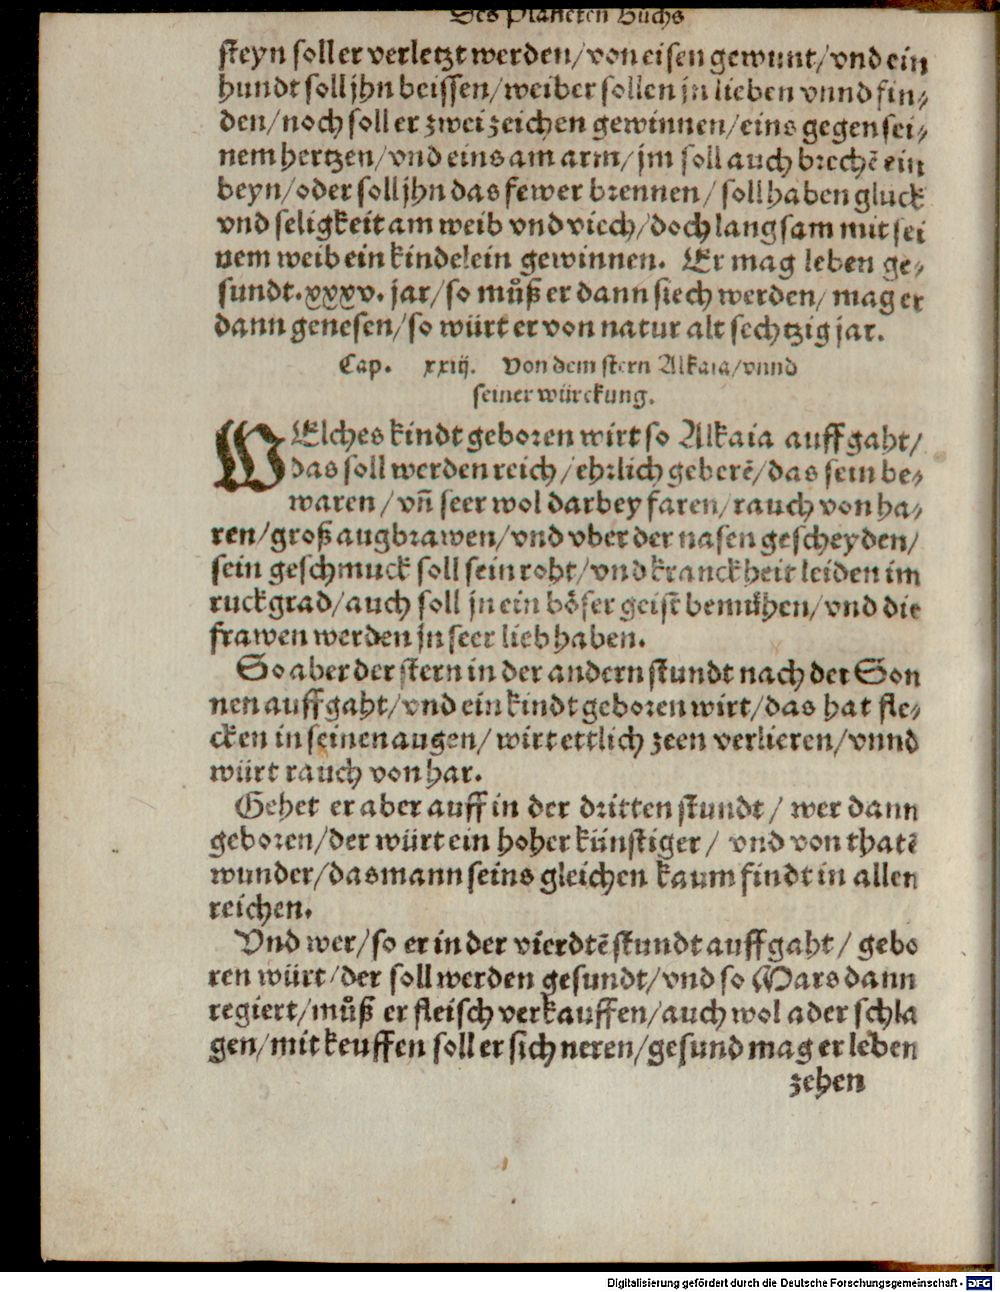 Des Planeten Buchs
steyn soll er verletzt werden/von eisen gewunt/vnd ein
hundt soll jhn beissen/weiber sollen jn lieben vnnd fin⸗
den/noch soll er zwei zeichen gewinnen/eins gegen sei⸗
nem hertzen/vnd eins am arm/jm soll auch brechẽ ein
beyn/oder soll jhn das fewer brennen/soll haben gluck
vnd seligkeit am weib vnd viech/doch langsam mit sei
nem weib ein kindelein gewinnen. Er mag leben ge⸗
sundt.xxxv. jar/so můß er dann siech werden/mag er
dann genesen/so würt er von natur alt sechtzig jar.
Cap. xxiij. Von dem stern Alkaia/vnnd
seiner würckung.
WElches kindt geboren wirt so Alkaia auffgaht/
das soll werden reich/ehrlich geberẽ/das sein be⸗
waren/vñ seer wol darbey faren/rauch von ha⸗
ren/groß augbrawen/vnd vber der nasen gescheyden/
sein geschmuck soll sein roht/vnd kranckheit leiden im
ruckgrad/auch soll jn ein böser geist bemühen/vnd die
frawen werden jn seer lieb haben.
So aber der stern in der andern stundt nach der Son
nen auffgaht/vnd ein kindt geboren wirt/das hat fle⸗
cken in seinen augen/wirt ettlich zeen verlieren/vnnd
würt rauch von har.
Gehet er aber auff in der dritten stundt/wer dann
geboren/der würt ein hoher künstiger/vnd von thatẽ
wunder/das mann seins gleichen kaum findt in allen
reichen.
Vnd wer/so er in der vierdtẽ stundt auffgaht/gebo
ren würt/der soll werden gesundt/vnd so Mars dann
regiert/můß er fleisch verkauffen/auch wol ader schla
gen/mit keuffen soll er sich neren/gesund mag er leben
zehen
Digitalisierung gefördert durch die Deutsche Forschungsgemeinschaft - DFG